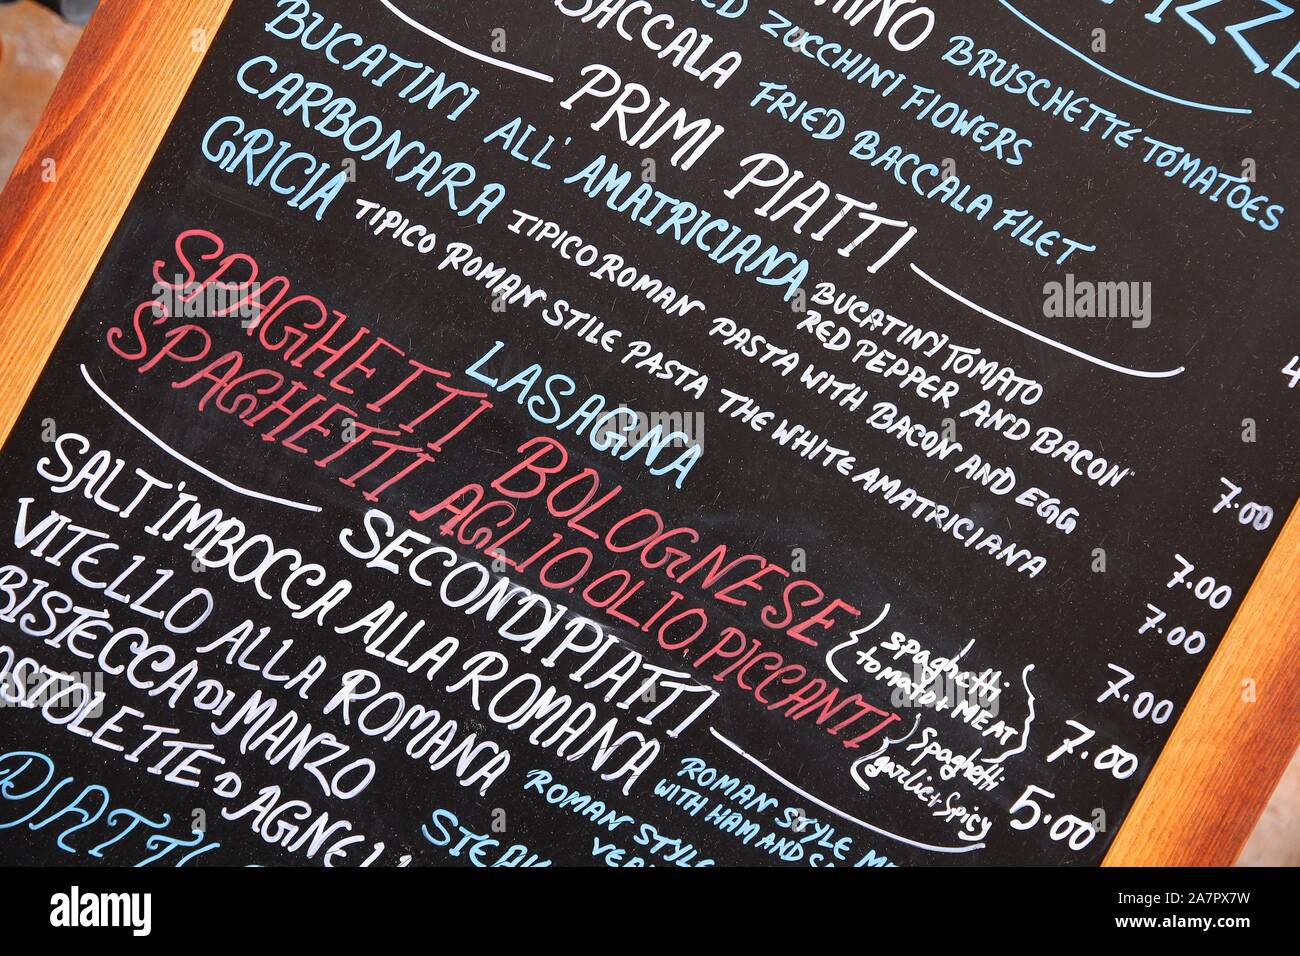 PIZZE
BRUSCHETTE TOMATOES
ZUCCHINI FLOWERS
BACCALA FRIED BACCALA FILET
PRIMI PIATTI
BUCATINI ALL' AMATRICIANA BUCATINI TOMATO
RED PEPPER AND BACON 7.00
CARBONARA TIPICO ROMAN PASTA WITH BACON AND EGG 7.00
GRICIA TIPICO ROMAN STILE PASTA THE WHITE AMATRICIANA 7.00
LASAGNA 7.00
SPAGHETTI BOLOGNESE {spaghetti
tomato + MEAT} 7.00
SPAGHETTI AGLIO.OLIO.PICCANTI {spaghetti
garlic + spicy 5.00
SECONDI PIATTI
SALT'IMBOCCA ALLA ROMANA ROMAN STYLE
WITH HAM AND
VITELLO ALLA ROMANA ROMAN STYLE
BISTECCA DI MANZO STEAK
D AGNELL
PIATTI
alamy
Image ID: 2A7PX7W
www.alamy.com